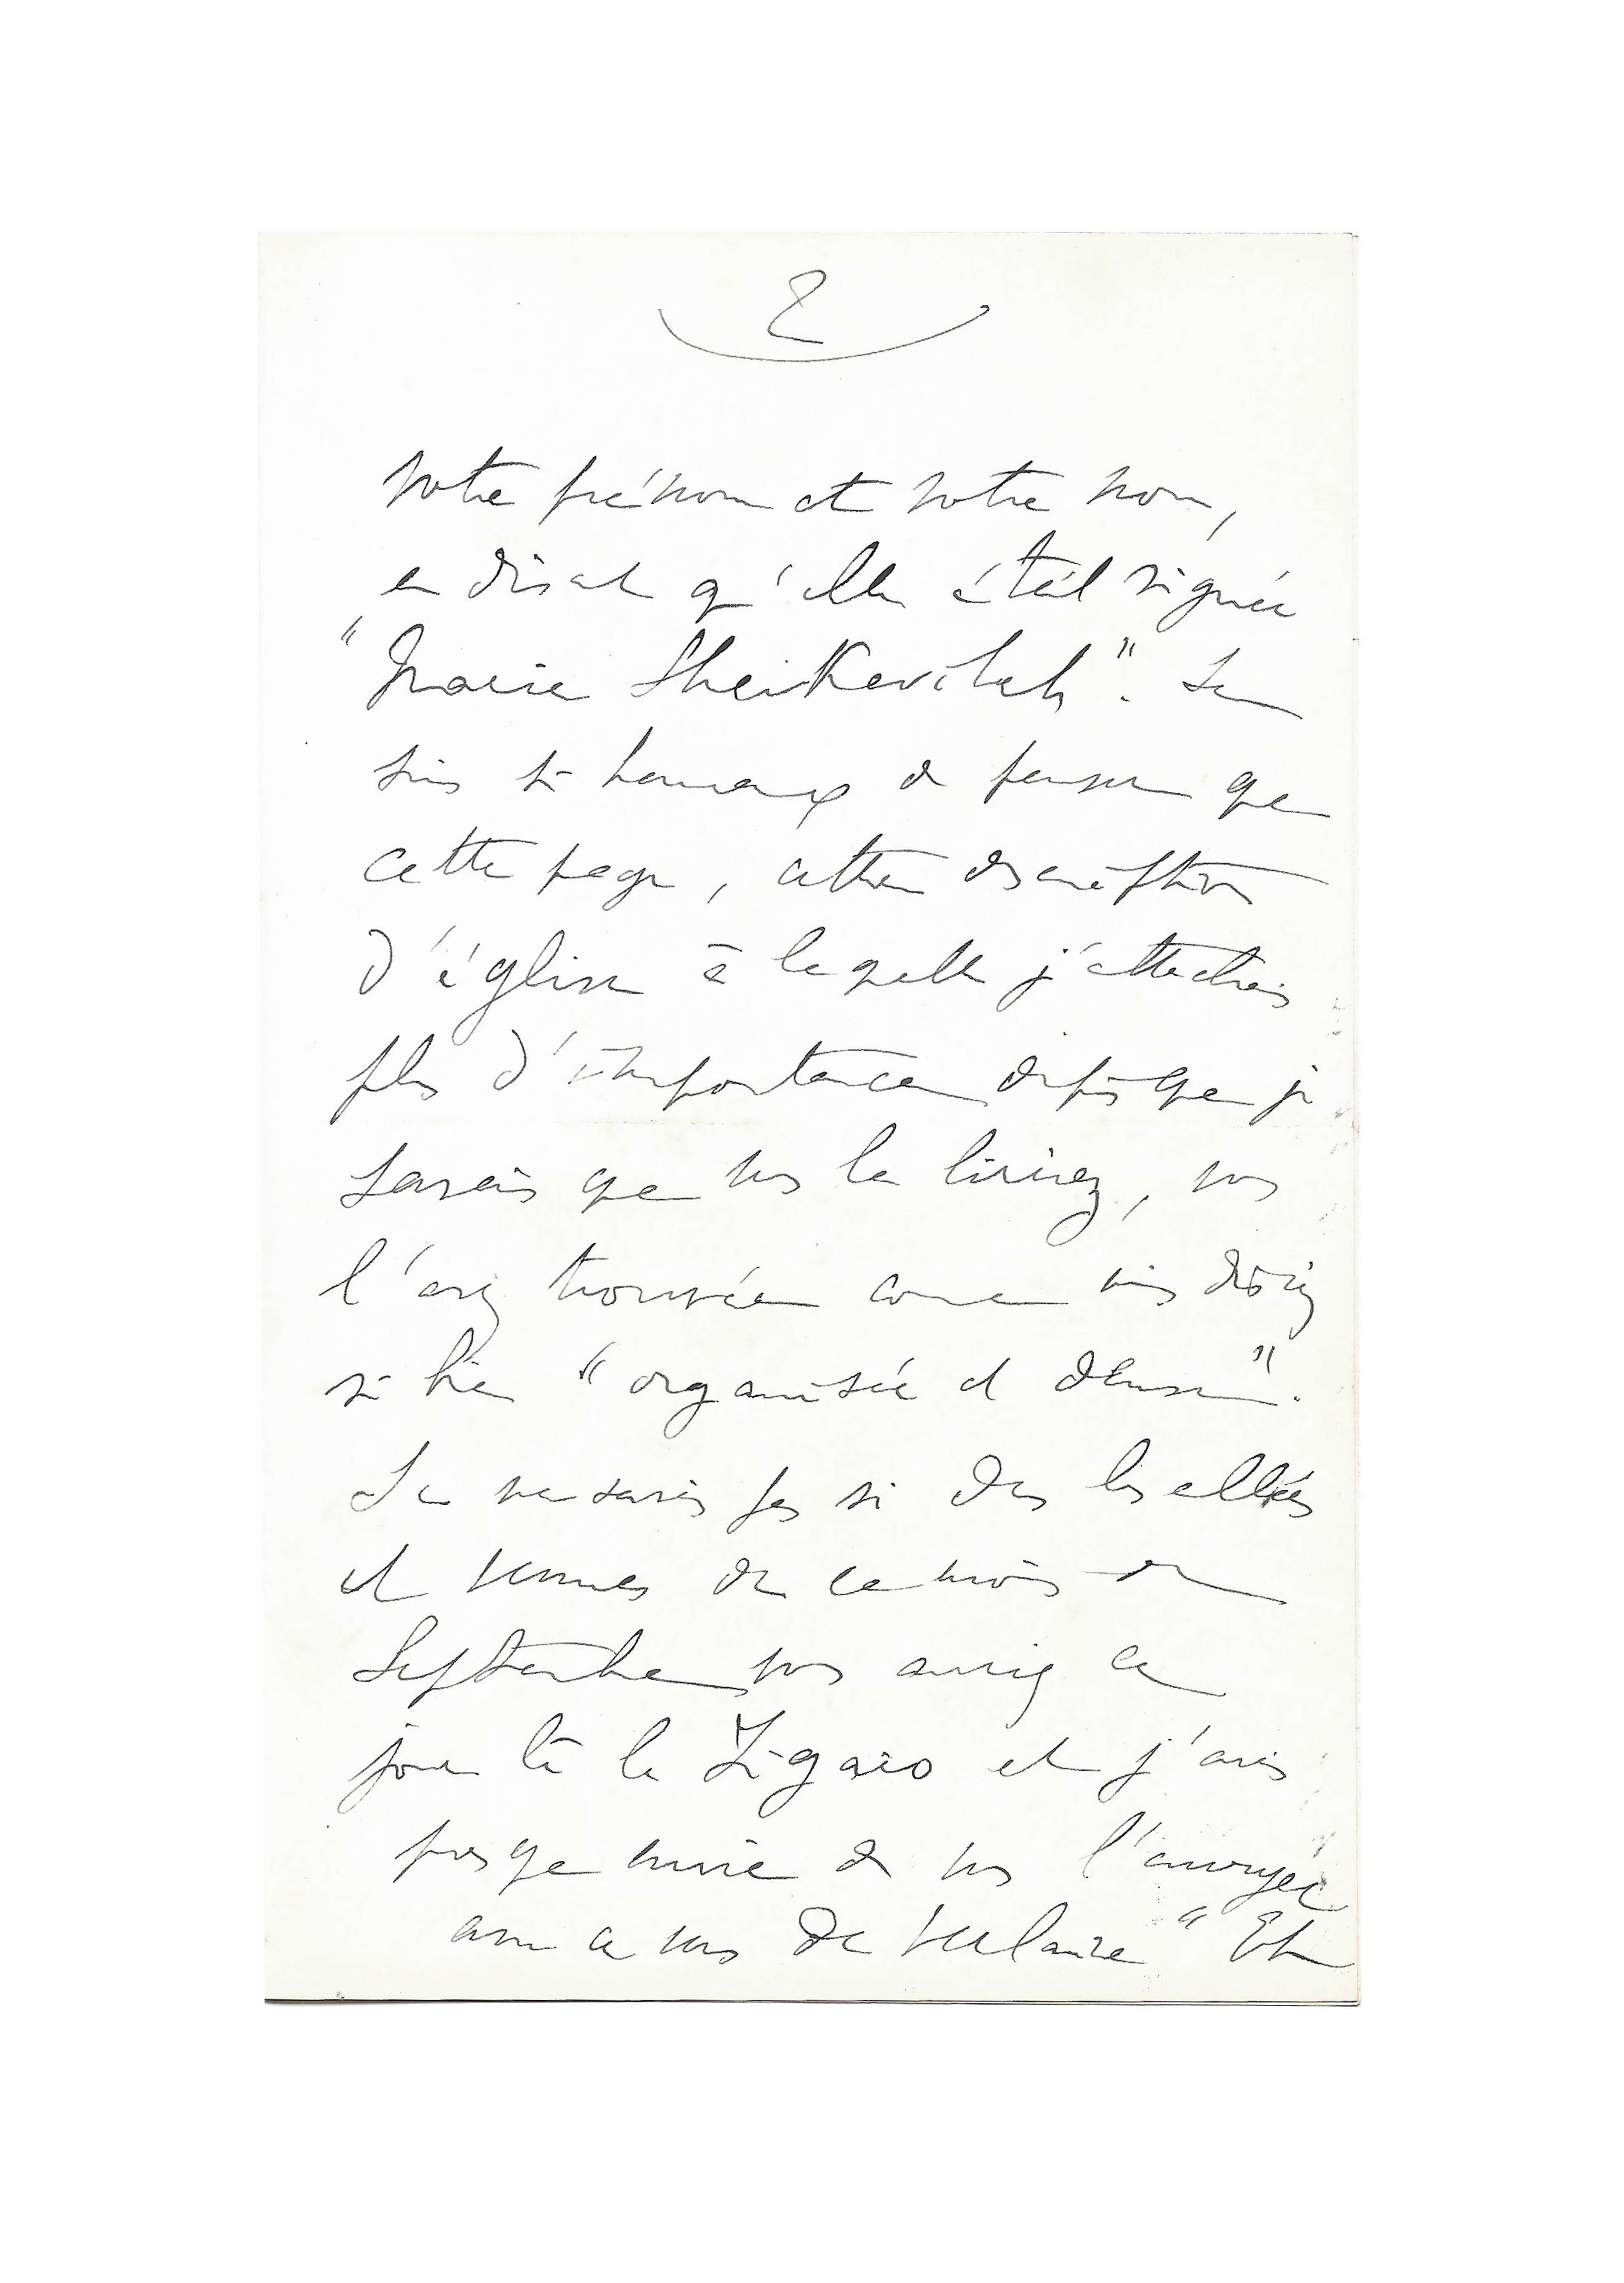 2
votre prénom et votre nom,
en disant qu'elle était signée
"Marie Sheikevitch". Je
suis si heureux de penser que
cette page, cette description
d'église à laquelle j'attachais
plus d'importance depuis que je
savais que vous la liriez, vous
l'avez trouvée comme vous disiez
si bien "organisée et dense".
Je ne savais pas si dans les allées
et venues de ce mois de
Septembre vous auriez ce
jour là le Figaro et j'avais
presque envie de vous l'envoyer
avec ce vers de Verlaine "Et